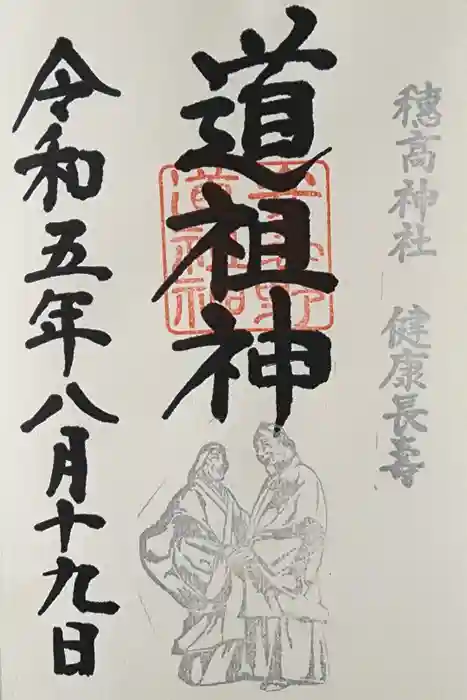 穂高神社 健康長壽
道祖神
令和五年八月十九日